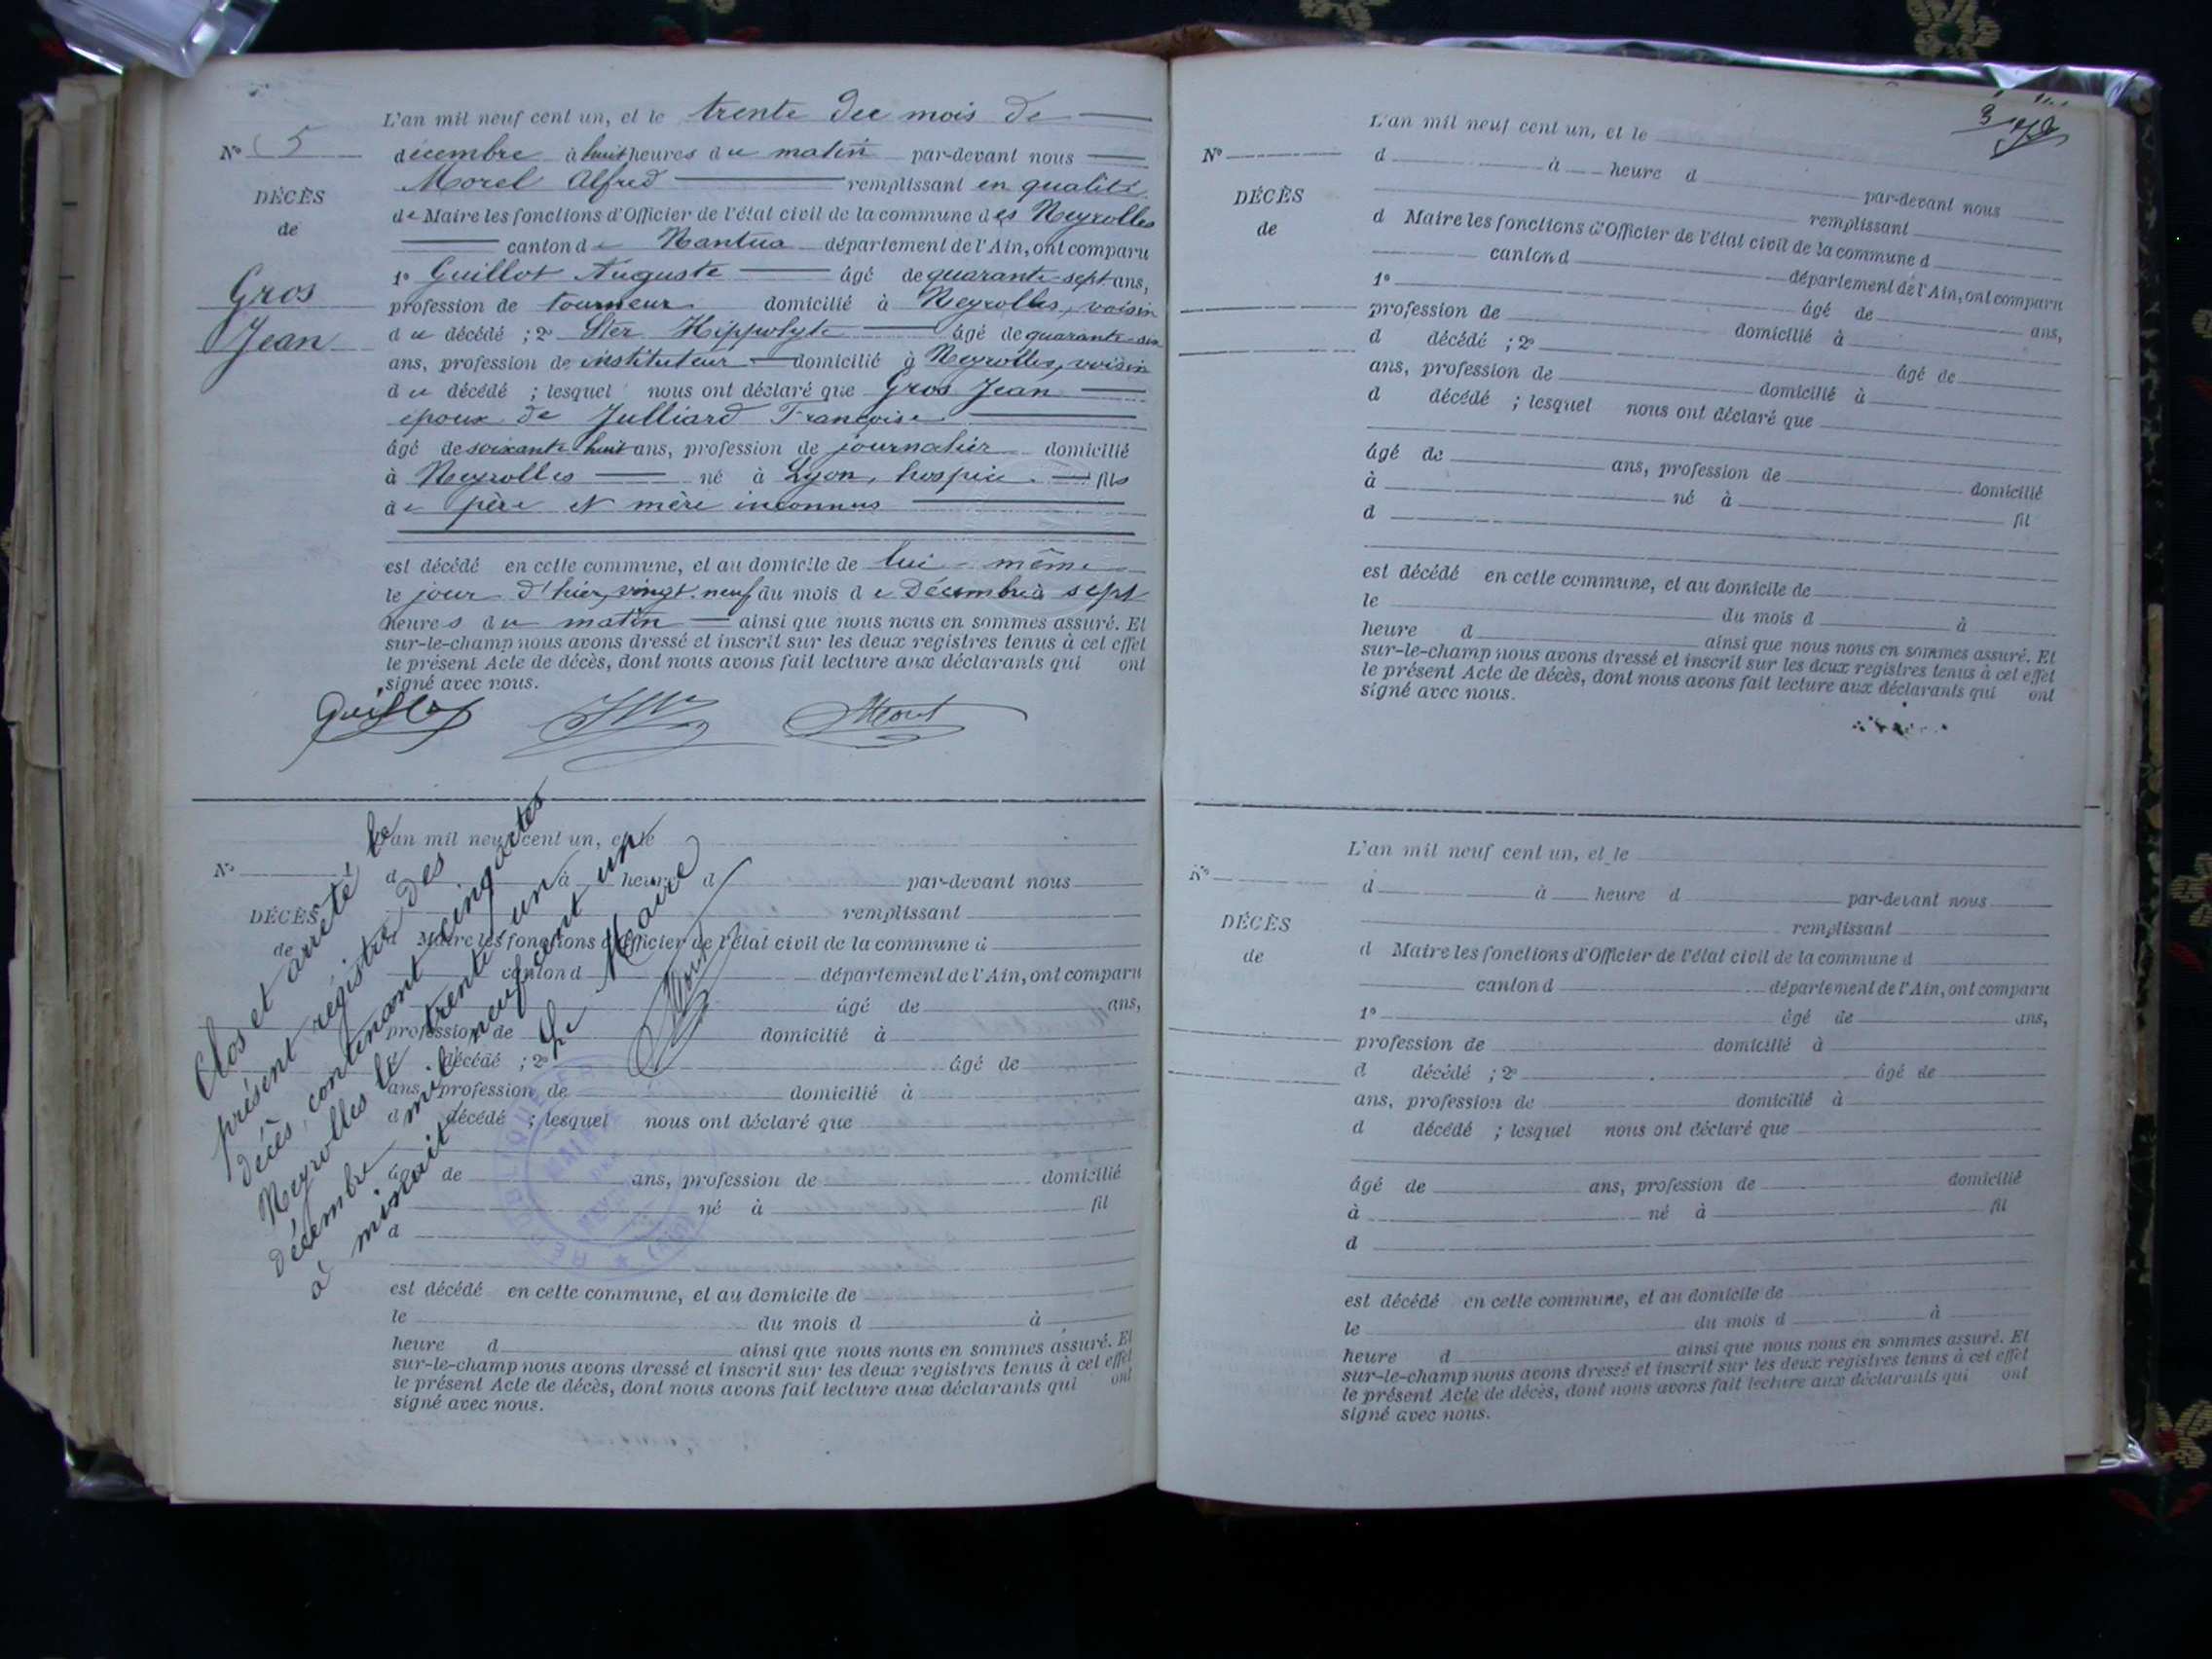 L'an mil neuf cent un, et le trente du mois de
N° 5
décembre à huit heures du matin par-devant nous
Morel Alfred remplissant en qualité
DÉCÈS
de Maire les fonctions d'Officier de l'état civil de la commune des Neyrolles
de
canton de Nantua département de l'Ain, ont comparu
1° Guillot Auguste âgé de quarante-sept ans,
Gros
profession de tourneur domicilié à Neyrolles, voisin
Jean
du décédé ; 2° Hippolyte âgé de quarante-six
ans, profession de instituteur domicilié à Neyrolles, voisin
du décédé ; lesquel nous ont déclaré que Gros Jean
époux de Julliard Françoise
âgé de soixante huit ans, profession de journalier domicilié
à Neyrolles né à Lyon, hospice fils
de père et mère inconnus
est décédé en cette commune, et au domicile de lui-même
le jour d'hier, vingt-neuf du mois de Décembre à sept
heures du matin ainsi que nous nous en sommes assuré. Et
sur-le-champ nous avons dressé et inscrit sur les deux registres tenus à cet effet
le présent Acte de décès, dont nous avons fait lecture aux déclarants qui ont
signé avec nous.
Guillot
Morel
L'an mil neuf cent un, et le
N°
d à heure d par-devant nous
remplissant
DÉCÈS
de
d Maire les fonctions d'Officier de l'état civil de la commune d
canton d département de l'Ain, ont comparu
âgé de ans,
profession de domicilié à
d décédé ; 2° âgé de
ans, profession de domicilié à
d décédé ; lesquel nous ont déclaré que
âgé de ans, profession de domicilié
né à fil
d
est décédé en cette commune, et au domicile de
le du mois d à
heure d ainsi que nous nous en sommes assuré. Et
sur-le-champ nous avons dressé et inscrit sur les deux registres tenus à cet effet
le présent Acte de décès, dont nous avons fait lecture aux déclarants qui ont
signé avec nous.
Clos et arrêté le
présent registre des
décès, contenant cinq actes
Neyrolles le trente un
décembre mil neuf cent un
à minuit Le Maire
Morel
MAIRIE
L'an mil neuf cent un, et le
N°
d à heure d par-devant nous
remplissant
DÉCÈS
de
d Maire les fonctions d'Officier de l'état civil de la commune d
canton d département de l'Ain, ont comparu
1° âgé de ans,
profession de domicilié à
d décédé ; 2° âgé de
ans, profession de domicilié à
d décédé ; lesquel nous ont déclaré que
âgé de ans, profession de domicilié
à né à fil
d
est décédé en cette commune, et au domicile de
le du mois d à
heure d ainsi que nous nous en sommes assuré. Et
sur-le-champ nous avons dressé et inscrit sur les deux registres tenus à cet effet
le présent Acte de décès, dont nous avons fait lecture aux déclarants qui ont
signé avec nous.
L'an mil neuf cent un, et le
N°
d à heure d par-devant nous
remplissant
DÉCÈS
de
d Maire les fonctions d'Officier de l'état civil de la commune d
canton d département de l'Ain, ont comparu
1° âgé de ans,
profession de domicilié à
d décédé ; 2° âgé de
ans, profession de domicilié à
d décédé ; lesquel nous ont déclaré que
âgé de ans, profession de domicilié
à né à fil
d
est décédé en cette commune, et au domicile de
le du mois d à
heure d ainsi que nous nous en sommes assuré. Et
sur-le-champ nous avons dressé et inscrit sur les deux registres tenus à cet effet
le présent Acte de décès, dont nous avons fait lecture aux déclarants qui ont
signé avec nous.